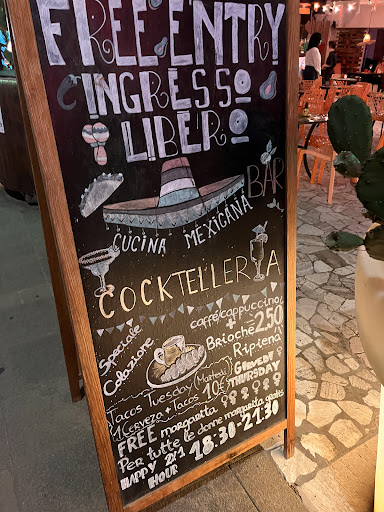 FREE ENTRY
INGRESSO
LIBERO
BAR
CUCINA MEXICANA
COCKTELLERIA
Speciale
Colazione
caffé/cappuccino
+ 2.50
Brioche
Ripiena
Tacos Tuesday (Martedì)
1 Cerveza + Tacos 10€
Giovedì
THURSDAY
FREE margarita
Per tutte le donne margarita gratis
HAPPY 2x1 18:30-21:30
HOUR